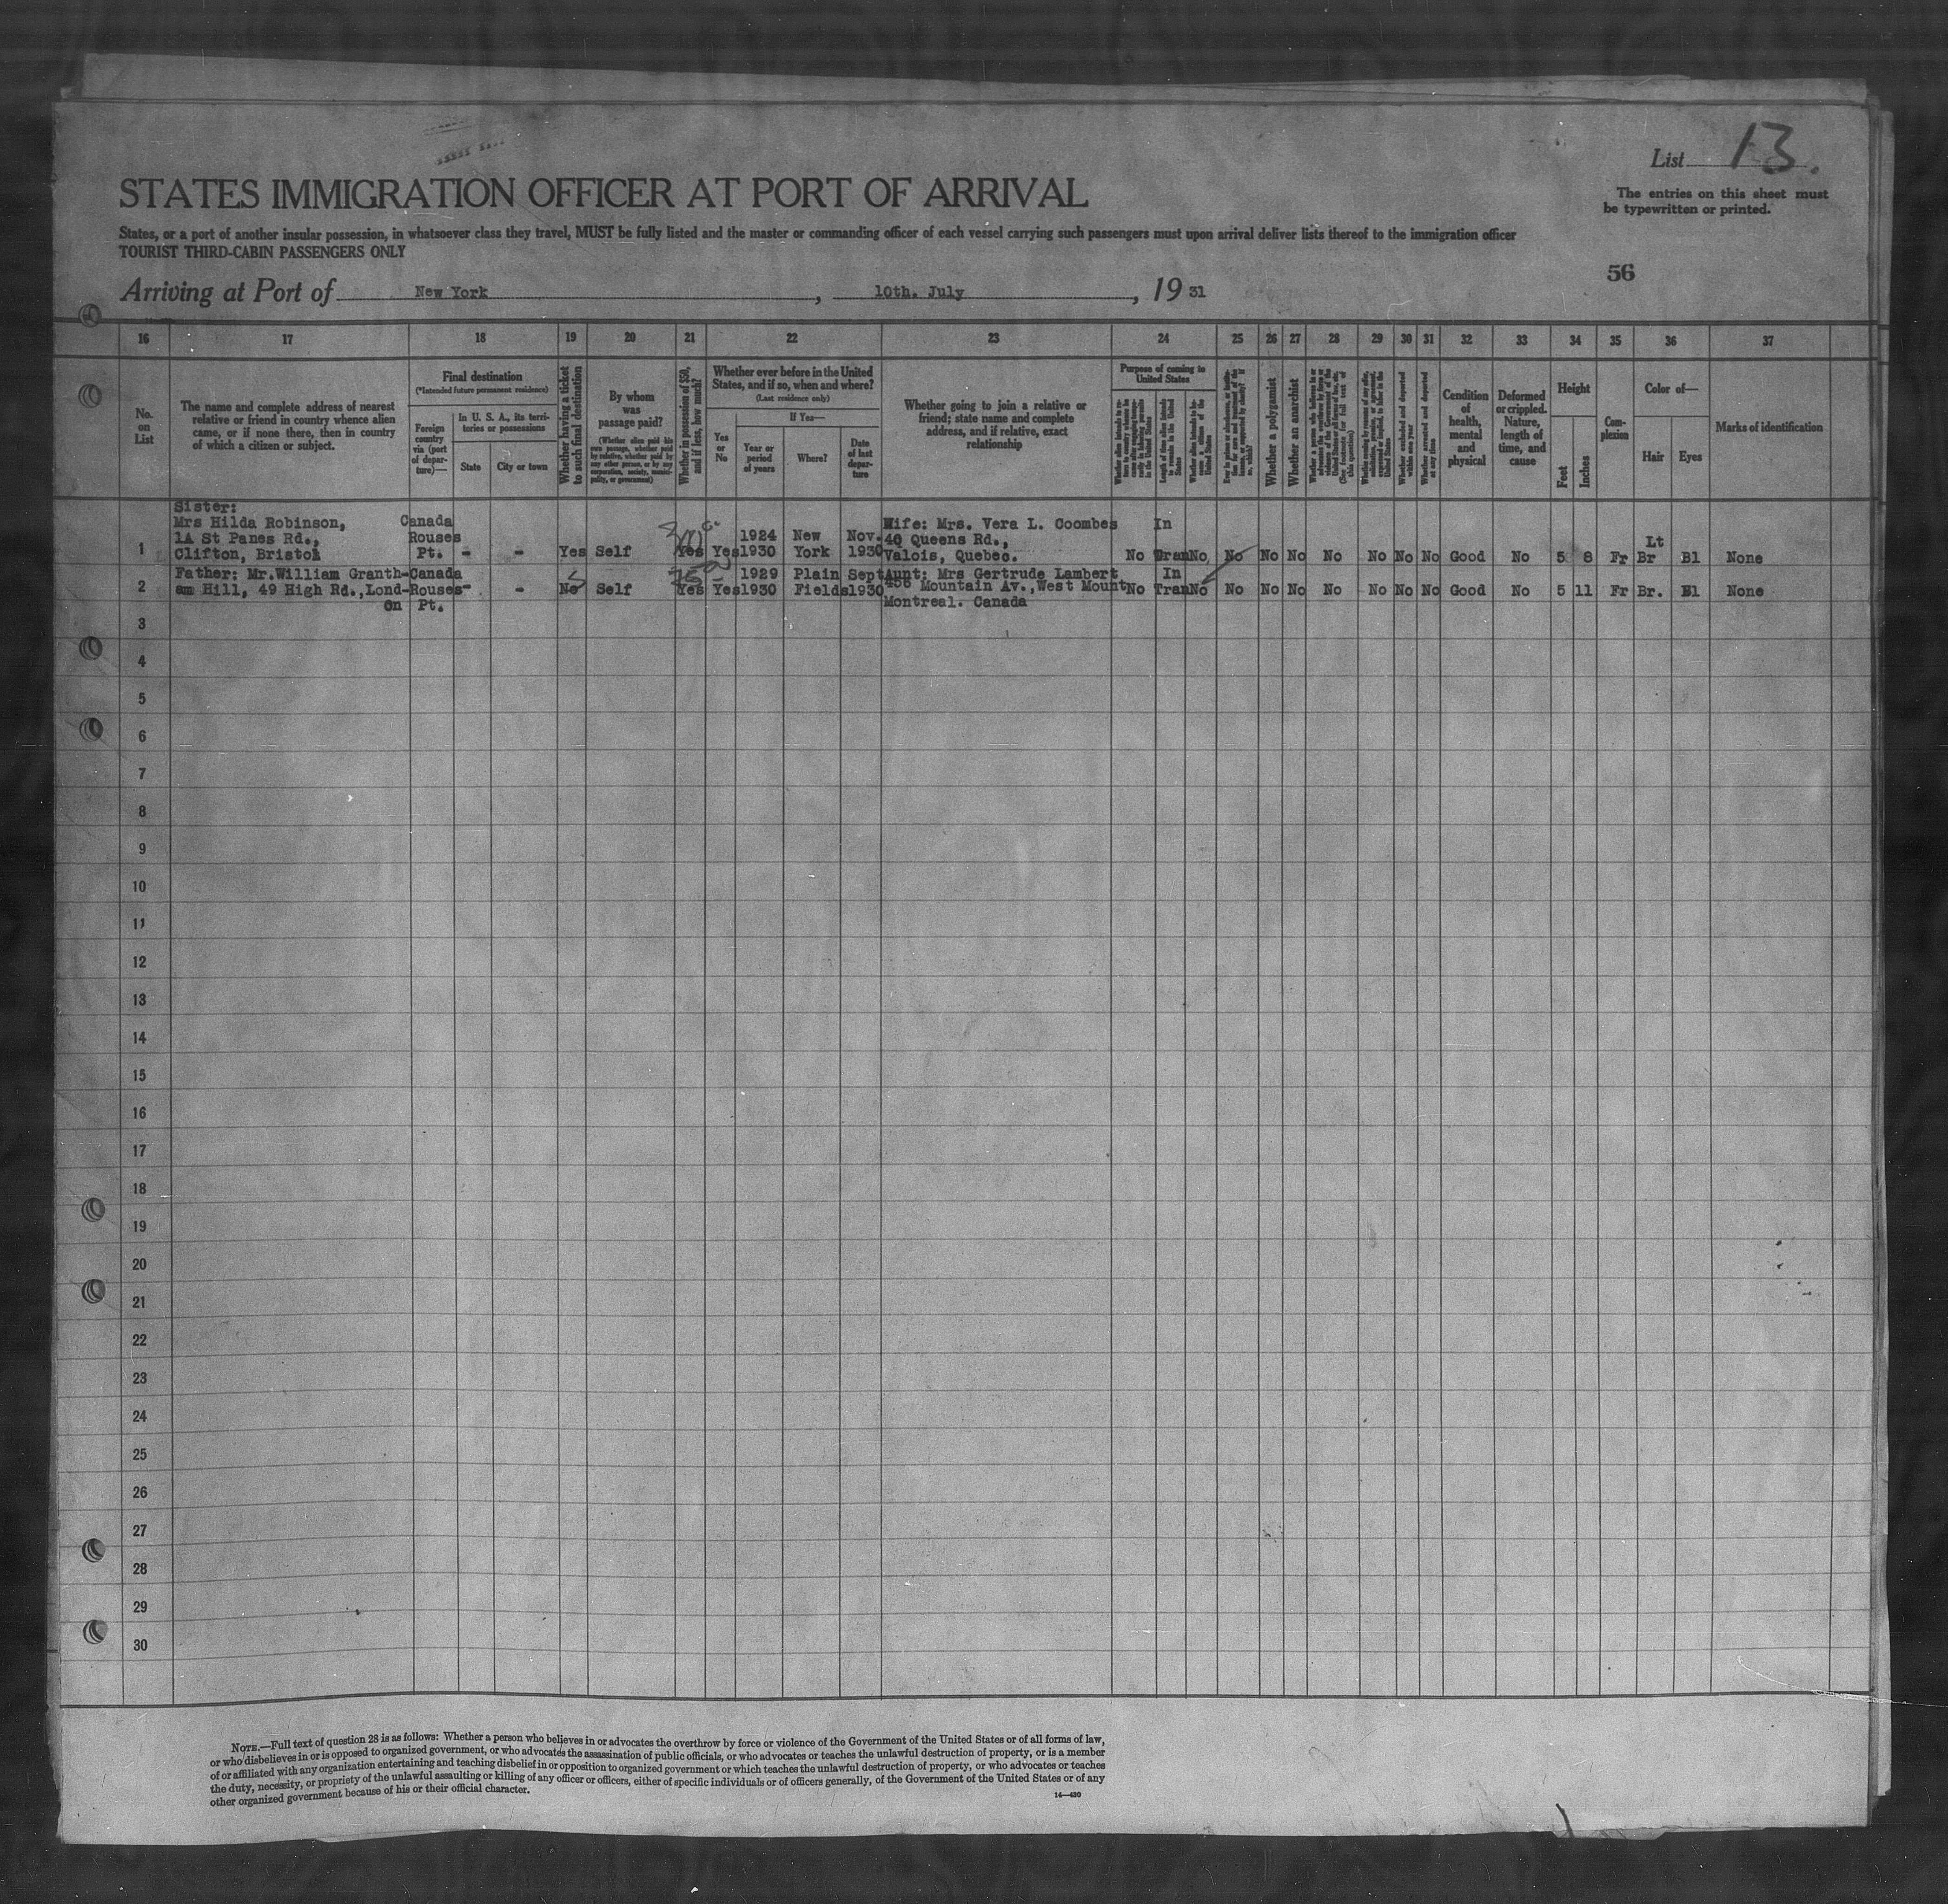 List 13.
The entries on this sheet must
be typewritten or printed.
STATES IMMIGRATION OFFICER AT PORT OF ARRIVAL
States, or a port of another insular possession, in whatsoever class they travel, MUST be fully listed and the master or commanding officer of each vessel carrying such passengers must upon arrival deliver lists thereof to the immigration officer
TOURIST THIRD-CABIN PASSENGERS ONLY
56
Arriving at Port of New York, 10th. July, 1931
16 17 18 19 20 21 22 23 24 25 26 27 28 29 30 31 32 33 34 35 36 37
No. on List
The name and complete address of nearest
relative or friend in country whence alien
came, or if none there, then in country
of which a citizen or subject.
Final destination
(*Intended future permanent residence)
Foreign country via (port of departure)—
In U. S. A., its territories or possessions
State
City or town
Whether having a ticket to such final destination
By whom was passage paid?
(Whether alien paid his own passage, whether paid by relative, whether paid by any other person, or by any corporation, society, municipality, or government)
Whether in possession of $50, and if less, how much?
Whether ever before in the United
States, and if so, when and where?
(Last residence only)
Yes or No
If Yes—
Year or period of years
Where?
Date of last departure
Whether going to join a relative or
friend; state name and complete
address, and if relative, exact
relationship
Purpose of coming to United States
Length of time alien intends to remain in the United States
Whether alien intends to become a citizen of the United States
Whether a polygamist
Whether an anarchist
Whether arrested and deported at any time
Condition of health, mental and physical
Deformed or crippled. Nature, length of time, and cause
Height
Feet
Inches
Complexion
Color of—
Hair
Eyes
Marks of identification
1
Sister:
Mrs Hilda Robinson,
1A St Panes Rd.,
Clifton, Bristol
Canada
Rouses
Pt. - - Yes Self Yes Yes
1924
1930
New
York
Nov.
1930
Wife: Mrs. Vera L. Coombes
40 Queens Rd.,
Valois, Quebec.
No In Tran No No No No No No No No Good No 5 8 Fr Lt Br Bl None
2
Father: Mr.William Granth-
am Hill, 49 High Rd.,Lond-
on
Canada
Rouses
Pt. - - No Self Yes Yes
1929
1930
Plain
Fields
Sept
1930
Aunt: Mrs Gertrude Lambert
Mountain Av.,West Mount
Montreal. Canada
No In Tran No No No No No No No No Good No 5 11 Fr Br. Bl None
3
4
5
6
7
8
9
10
11
12
13
14
15
16
17
18
19
20
21
22
23
24
25
26
27
28
29
30
NOTE.—Full text of question 28 is as follows: Whether a person who believes in or advocates the overthrow by force or violence of the Government of the United States or of all forms of law,
or who disbelieves in or is opposed to organized government, or who advocates the assassination of public officials, or who advocates or teaches the unlawful destruction of property, or is a member
of or affiliated with any organization entertaining and teaching disbelief in or opposition to organized government or which teaches the unlawful destruction of property, or who advocates or teaches
the duty, necessity, or propriety of the unlawful assaulting or killing of any officer or officers, either of specific individuals or of officers generally, of the Government of the United States or of any
other organized government because of his or their official character.
14—430